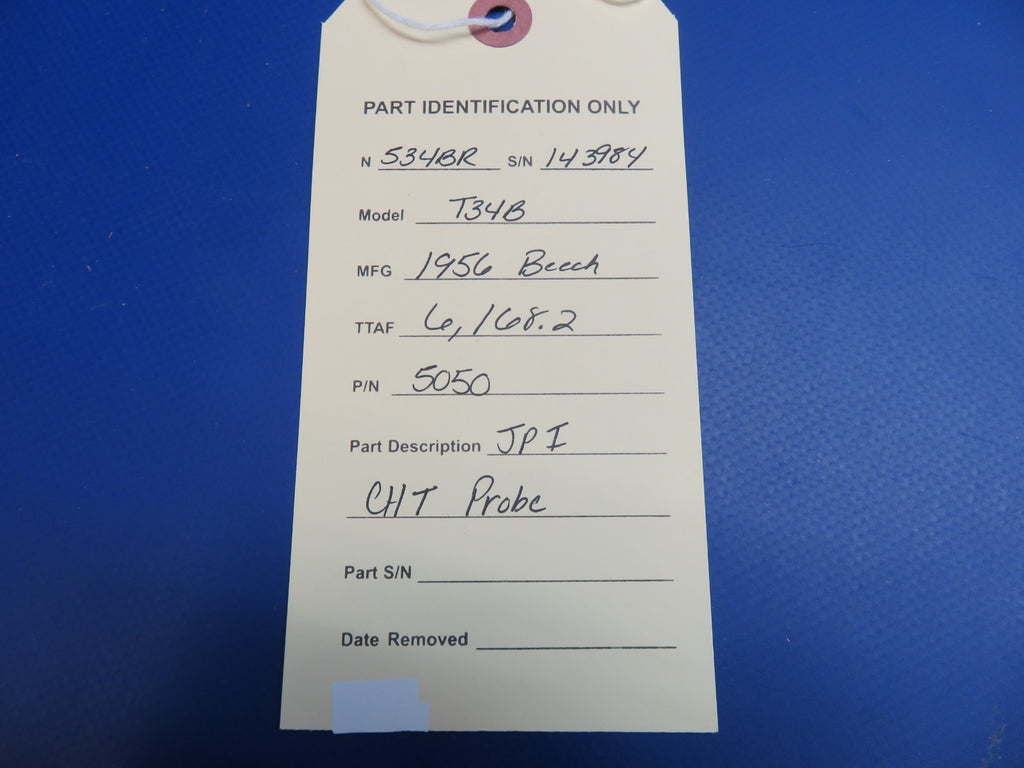 PART IDENTIFICATION ONLY
N 534BR S/N 143984
Model T34B
MFG 1956 Beech
TTAF 6,168.2
P/N 5050
Part Description JPI
CHT Probe
Part S/N
Date Removed